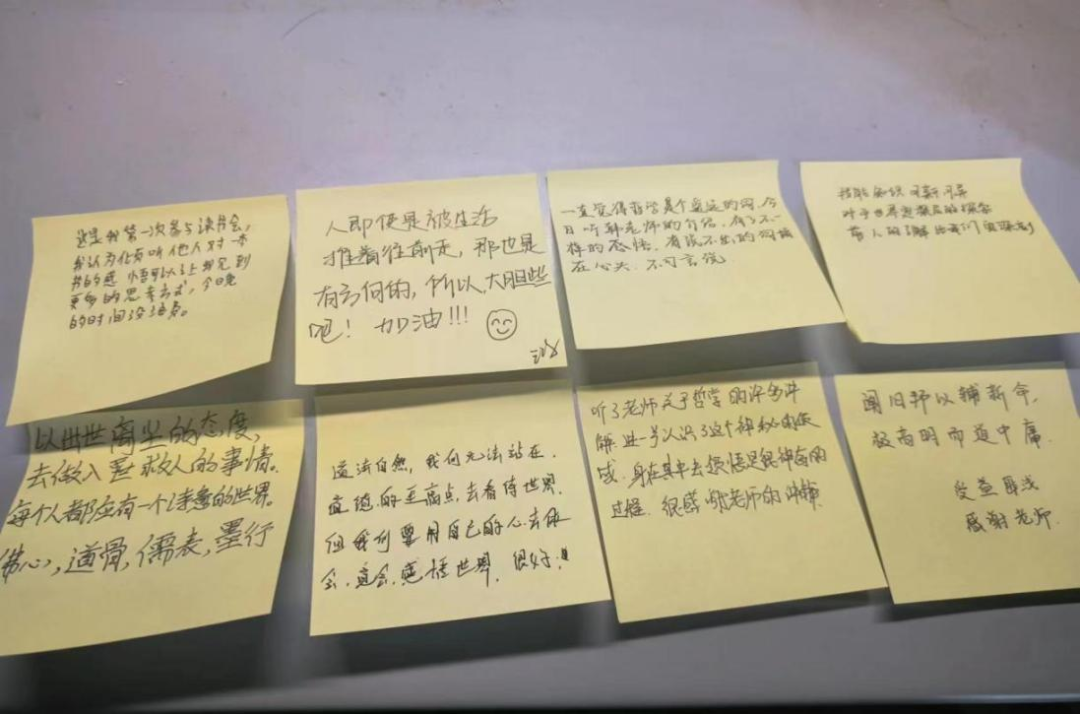 这是我第一次参与读书会,
我认为化有听他人对一本
书的感悟可以
更多的思考方式,今日晚
的时间没浪费。
人即使是被生活
推着往前走,那也是
有方向的,所以,大胆些
吧!加油!!!
一直觉得哲学是个遥远的词,今
日听韩老师的介绍,有了不一
样的感悟。有说不出的
在心头.不可言说.
技能知识
对于世界
有人的了解比
听了老师关于哲学的许多讲
解.进一步认识了这个神秘的领
域.身在其中去领悟是很神奇的
过程.很感谢老师的讲解
阐旧邦以辅新命,
极高明而道中庸.
受益匪浅
感谢老师.
以出世离尘的态度,
去做入世救人的事情。
每个人都应有一个诗意的世界.
佛心,道骨,儒表,墨行
道法自然,我们无法站在.
道德的至高点,去看待世界.
但我们要用自己的心去体
会.意会.感悟世界.很好!!